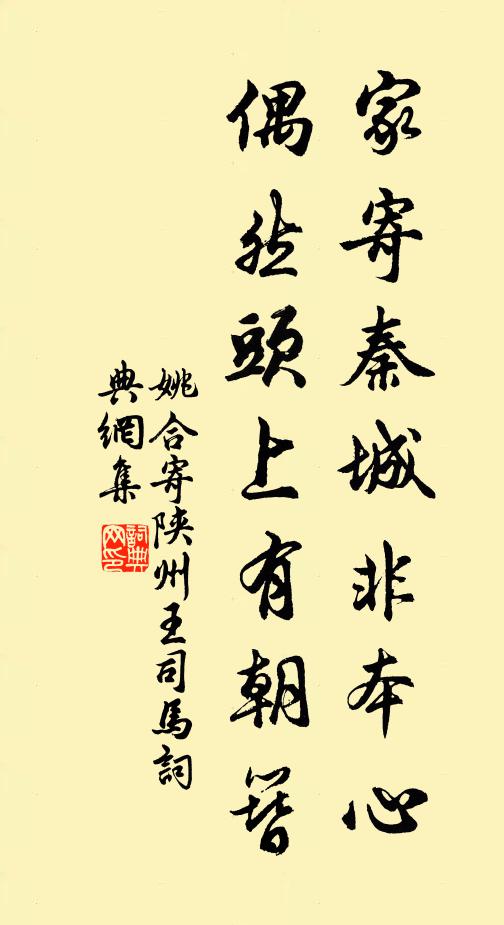 家寄秦城非本心
偶然頭上有朝簪
姚合寄陝州王司馬詞
典網集
詞典
网印